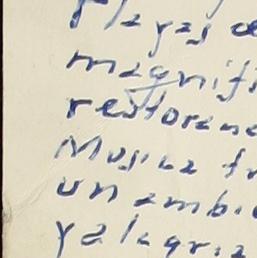 playas
magnifi
restorane
Musica fr
un ambie
y alegria